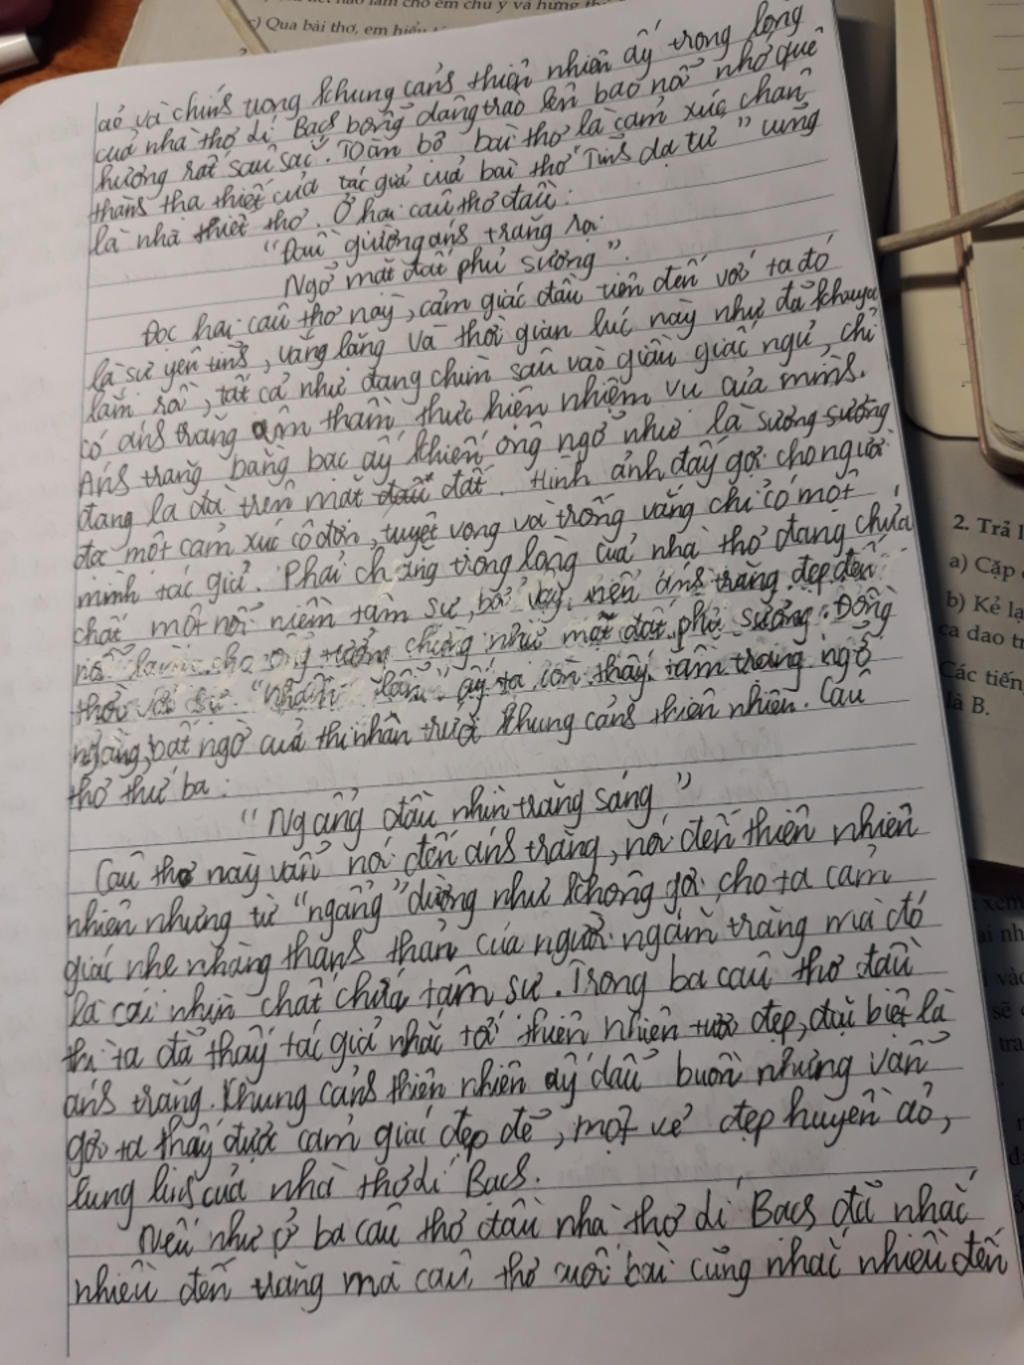 c) Qua bài thơ, em hiểu
ảo, và chính trong khung cảnh thiên nhiên ấy trong lòng
của nhà thơ Lí Bạch bỗng dâng trào lên bao nỗi nhớ quê
hương rất sâu sắc. Toàn bộ bài thơ là cảm xúc chân
thành tha thiết của tác giả của bài thơ "Tĩnh dạ tứ" cũng
là nhà thơ. Ở hai câu thơ đầu:
"Đầu giường ánh trăng rọi
Ngỡ mặt đất phủ sương".
Đọc hai câu thơ này, cảm giác đầu tiên đến với ta đó
là sự yên tĩnh, vắng lặng và thời gian lúc này như đã khuya
lắm rồi, tất cả như đang chìm sâu vào giấc ngủ, chỉ
có ánh trăng âm thầm thực hiện nhiệm vụ của mình.
Ánh trăng bàng bạc ấy khiến ông ngỡ như là sương sương
đang la đà trên mặt đất. Hình ảnh đấy gợi cho người
đọc một cảm xúc cô đơn, tuyệt vọng và trống vắng chỉ có một
mình tác giả. Phải chăng trong lòng của nhà thơ đang chứa
chất một nỗi niềm tâm sự, bởi vậy, nên ánh trăng đẹp đến
nỗi làm cho ông tưởng chừng như mặt đất phủ sương. Đồng
thời với sự "nhầm lẫn" ấy ta còn thấy tâm trạng ngỡ
ngàng, bất ngờ của thi nhân trước khung cảnh thiên nhiên. Câu
thơ thứ ba:
"Ngẩng đầu nhìn trăng sáng"
Câu thơ này vẫn nói đến ánh trăng, nói đến thiên nhiên
nhiên nhưng từ "ngẩng" dường như không gợi cho ta cảm
giác nhẹ nhàng thanh thản của người ngắm trăng mà đó
là cái nhìn chất chứa tâm sự. Trong ba câu thơ đầu
thì ta đã thấy tác giả nhắc tới thiên nhiên đẹp, đặc biệt là
ánh trăng. Khung cảnh thiên nhiên ấy dẫu buồn nhưng vẫn
gợi ta thấy được cảm giác đẹp đẽ, một vẻ đẹp huyền ảo,
lung linh của nhà thơ Lí Bạch.
Nếu như ở ba câu thơ đầu nhà thơ Lí Bạch đã nhắc
nhiều đến trăng mà câu thơ cuối bài cũng nhắc nhiều đến
2. Trả l
a) Cặp
b) Kẻ lạ
ca dao tr
Các tiến
là B.